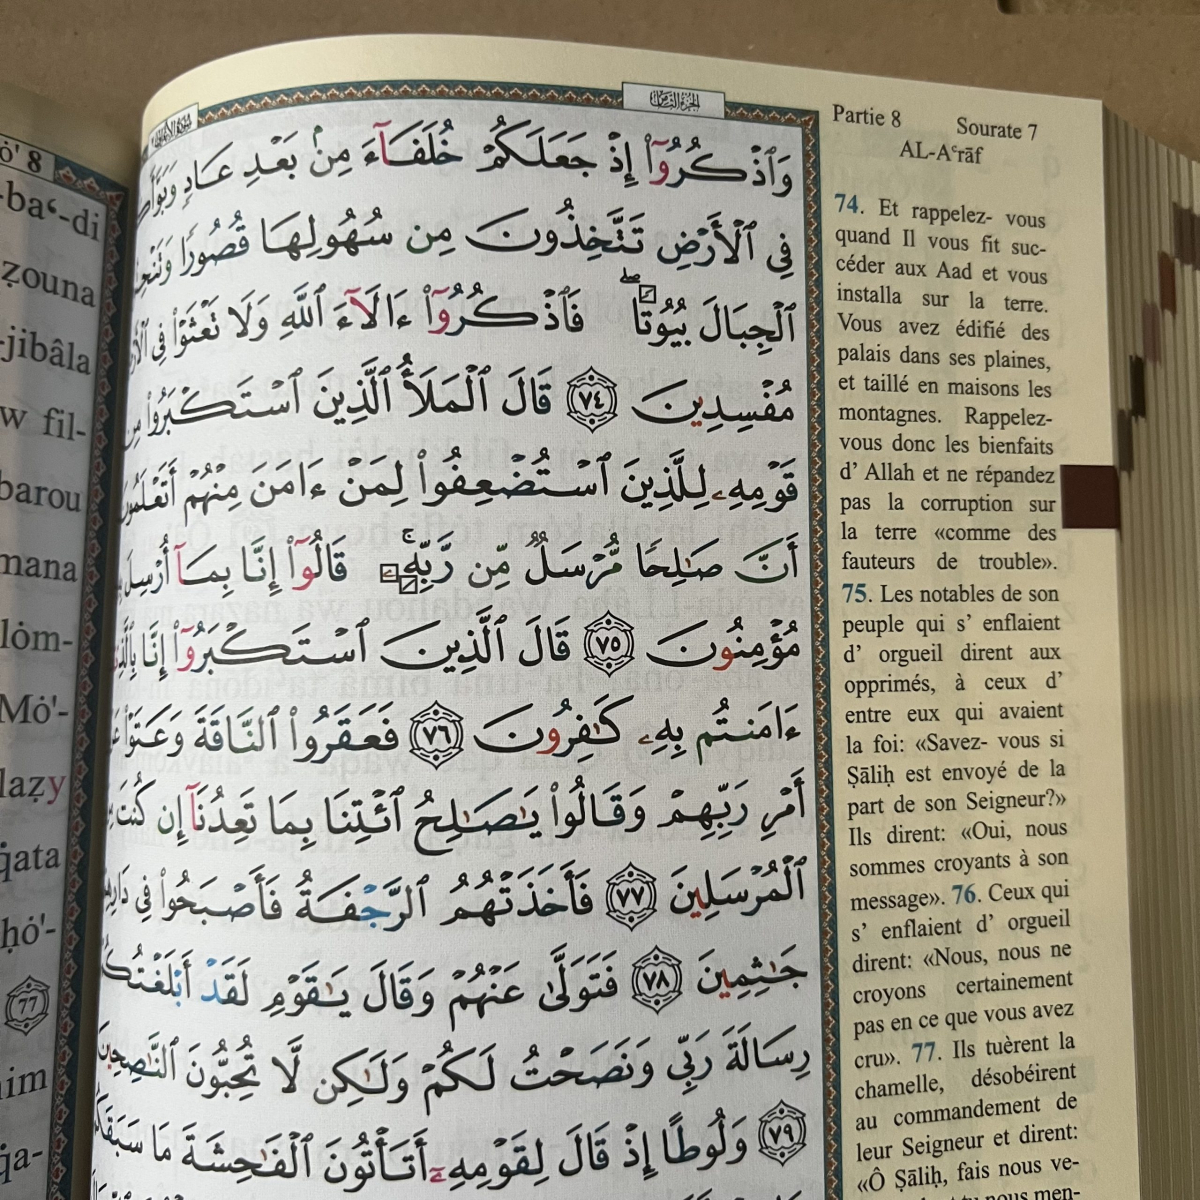 الجزء الثامن
وَٱذْكُرُوٓا۟ إِذْ جَعَلَكُمْ خُلَفَآءَ مِنۢ بَعْدِ عَادٍ
فِى ٱلْأَرْضِ تَتَّخِذُونَ مِن سُهُولِهَا قُصُورًا
ٱلْجِبَالَ بُيُوتًا ۖ فَٱذْكُرُوٓا۟ ءَالَآءَ ٱللَّهِ وَلَا تَعْثَوْا۟ فِى
مُفْسِدِينَ ٧٤ قَالَ ٱلْمَلَأُ ٱلَّذِينَ ٱسْتَكْبَرُوا۟
قَوْمِهِۦ لِلَّذِينَ ٱسْتُضْعِفُوا۟ لِمَنْ ءَامَنَ مِنْهُمْ
أَنَّ صَٰلِحًا مُّرْسَلٌ مِّن رَّبِّهِۦ ۚ قَالُوٓا۟ إِنَّا بِمَآ أُرْسِلَ
مُؤْمِنُونَ ٧٥ قَالَ ٱلَّذِينَ ٱسْتَكْبَرُوٓا۟ إِنَّا
ءَامَنتُم بِهِۦ كَٰفِرُونَ ٧٦ فَعَقَرُوا۟ ٱلنَّاقَةَ وَعَتَوْا۟
أَمْرِ رَبِّهِمْ وَقَالُوا۟ يَٰصَٰلِحُ ٱئْتِنَا بِمَا تَعِدُنَآ إِن كُنتَ
ٱلْمُرْسَلِينَ ٧٧ فَأَخَذَتْهُمُ ٱلرَّجْفَةُ فَأَصْبَحُوا۟ فِى
جَٰثِمِينَ ٧٨ فَتَوَلَّىٰ عَنْهُمْ وَقَالَ يَٰقَوْمِ لَقَدْ
رِسَالَةَ رَبِّى وَنَصَحْتُ لَكُمْ وَلَٰكِن لَّا تُحِبُّونَ ٱلنَّٰصِحِينَ
٧٩ وَلُوطًا إِذْ قَالَ لِقَوْمِهِۦٓ أَتَأْتُونَ ٱلْفَٰحِشَةَ مَا
Partie 8 Sourate 7
AL-Aʿrāf
74. Et rappelez- vous
quand Il vous fit suc-
céder aux Aad et vous
installa sur la terre.
Vous avez édifié des
palais dans ses plaines,
et taillé en maisons les
montagnes. Rappelez-
vous donc les bienfaits
d’ Allah et ne répandez
pas la corruption sur
la terre «comme des
fauteurs de trouble».
75. Les notables de son
peuple qui s’ enflaient
d’ orgueil dirent aux
opprimés, à ceux d’
entre eux qui avaient
la foi: «Savez- vous si
Ṣāliḥ est envoyé de la
part de son Seigneur?»
Ils dirent: «Oui, nous
sommes croyants à son
message». 76. Ceux qui
s’ enflaient d’ orgueil
dirent: «Nous, nous ne
croyons certainement
pas en ce que vous avez
cru». 77. Ils tuèrent la
chamelle, désobéirent
au commandement de
leur Seigneur et dirent:
«Ô Ṣāliḥ, fais nous ve-
8
-ba‘-di
ẓouna
-jibâla
w fil-
barou
mana
lȯm-
Mȯ'-
laẓy
ḥȯ'-
77